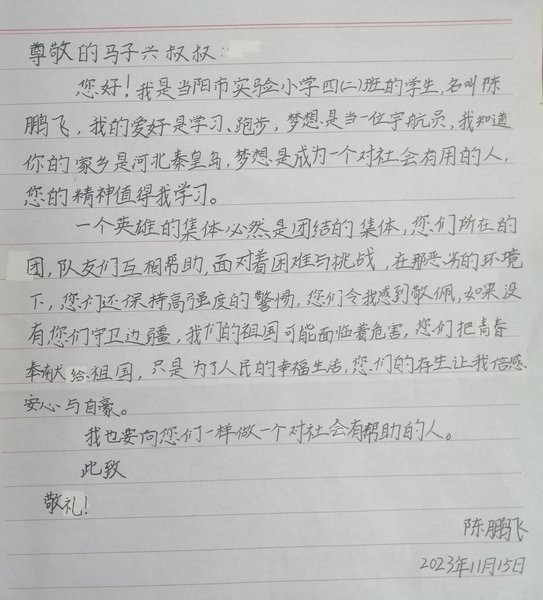 尊敬的马子兴叔叔:
您好!我是当阳市实验小学四(二)班的学生,名叫陈
鹏飞,我的爱好是学习、跑步,梦想是当一位宇航员,我知道
你的家乡是河北秦皇岛,梦想是成为一个对社会有用的人,
您的精神值得我学习。
一个英雄的集体必然是团结的集体,您们所在的
团,队友们互相帮助,面对着困难与挑战,在那恶劣的环境
下,您们还保持高强度的警惕,您们令我感到敬佩,如果没
有您们守卫边疆,我们的祖国可能面临着危害,您们把青春
奉献给祖国,只是为了人民的幸福生活,您们的存生让我倍感
安心与自豪。
我也要向您们一样做一个对社会有帮助的人。
此致
敬礼!
陈鹏飞
2023年11月15日